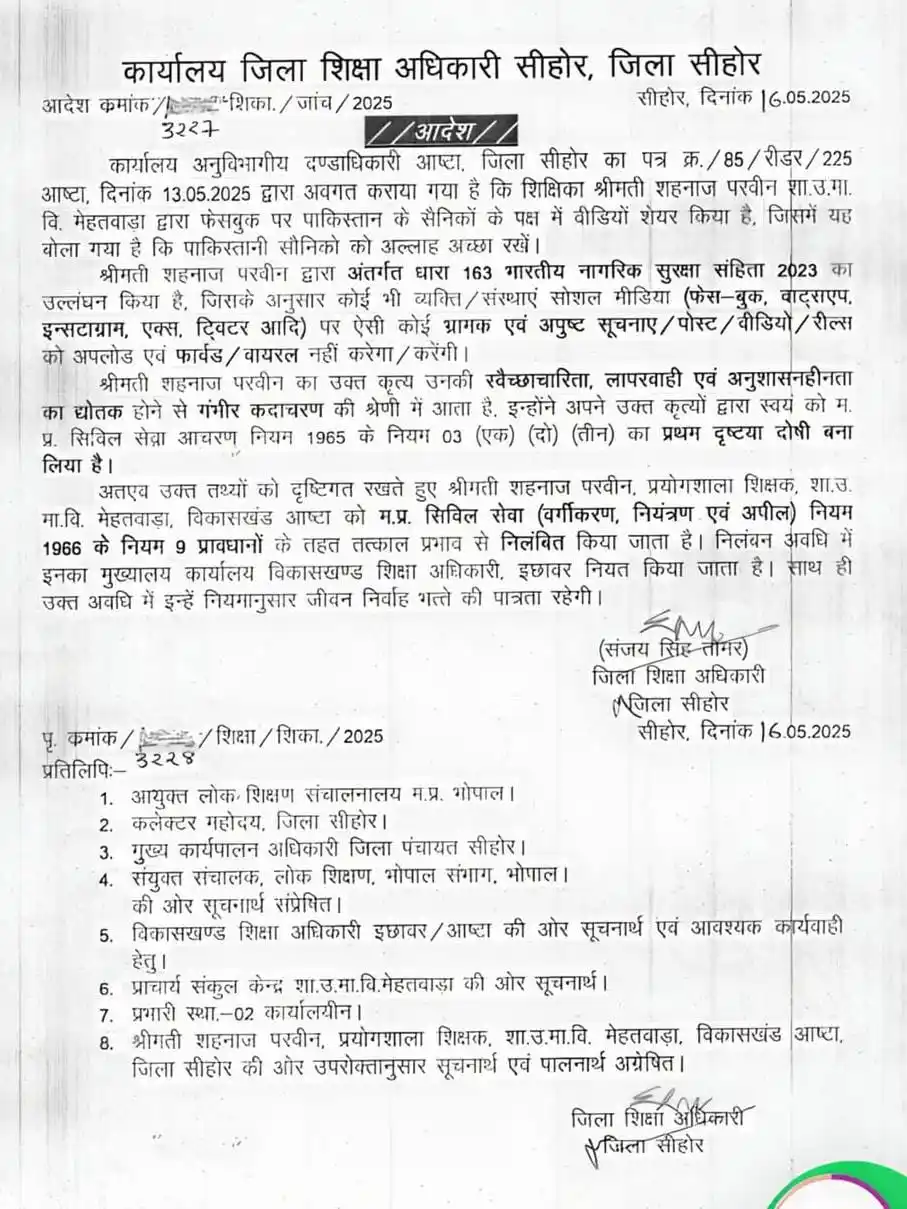 कार्यालय जिला शिक्षा अधिकारी सीहोर, जिला सीहोर
आदेश कमांक/ शिका./जांच/2025 सीहोर, दिनांक 16.05.2025
3227
//आदेश//
कार्यालय अनुविभागीय दण्डाधिकारी आष्टा, जिला सीहोर का पत्र क्र./85/रीडर/225
आष्टा, दिनांक 13.05.2025 द्वारा अवगत कराया गया है कि शिक्षिका श्रीमती शहनाज परवीन शा.उ.मा.
वि. मेहतवाड़ा द्वारा फेसबुक पर पाकिस्तान के सैनिकों के पक्ष में वीडियों शेयर किया है, जिसमें यह
बोला गया है कि पाकिस्तानी सौनिको को अल्लाह अच्छा रखें।
श्रीमती शहनाज परवीन द्वारा अंतर्गत धारा 163 भारतीय नागरिक सुरक्षा संहिता 2023 का
उल्लंघन किया है, जिसके अनुसार कोई भी व्यक्ति/संस्थाएं सोशल मीडिया (फेस-बुक, वाट्सएप,
इन्सटाग्राम, एक्स, ट्विटर आदि) पर ऐसी कोई भ्रागक एवं अपुष्ट सूचनाए/पोस्ट/वीडियो/रील्स
को अपलोड एवं फार्वड/वायरल नहीं करेगा/करेंगी।
श्रीमती शहनाज परवीन का उक्त कृत्य उनकी स्वैच्छाचारिता, लापरवाही एवं अनुशासनहीनता
का द्योतक होने से गंभीर कदाचरण की श्रेणी में आता है, इन्होंने अपने उक्त कृत्यों द्वारा स्वयं को म.
प्र. सिविल सेवा आचरण नियम 1965 के नियम 03 (एक) (दो) (तीन) का प्रथम दृष्टया दोषी बना
लिया है।
अतएव उक्त तथ्यों को दृष्टिगत रखते हुए श्रीमती शहनाज परवीन, प्रयोगशाला शिक्षक, शा.उ.
मा.वि. मेहतवाड़ा, विकासखंड आष्टा को म.प्र. सिविल सेवा (वर्गीकरण, नियंत्रण एवं अपील) नियम
1966 के नियम 9 प्रावधानों के तहत तत्काल प्रभाव से निलंबित किया जाता है। निलंबन अवधि में
इनका मुख्यालय कार्यालय विकासखण्ड शिक्षा अधिकारी, इछावर नियत किया जाता है। साथ ही
उक्त अवधि में इन्हें नियमानुसार जीवन निर्वाह भत्ते की पात्रता रहेगी।
(संजय सिंह तोमर)
जिला शिक्षा अधिकारी
जिला सीहोर
पृ. कमांक/ /शिक्षा/शिका./2025 सीहोर, दिनांक 16.05.2025
3228
प्रतिलिपिः–
1. आयुक्त लोक शिक्षण संचालनालय म.प्र. भोपाल।
2. कलेक्टर महोदय, जिला सीहोर।
3. मुख्य कार्यपालन अधिकारी जिला पंचायत सीहोर।
4. संयुक्त संचालक, लोक शिक्षण, भोपाल संभाग, भोपाल।
की ओर सूचनार्थ संप्रेषित।
5. विकासखण्ड शिक्षा अधिकारी इछावर/आष्टा की ओर सूचनार्थ एवं आवश्यक कार्यवाही
हेतु।
6. प्राचार्य संकुल केन्द्र शा.उ.मा.वि.मेहतवाड़ा की ओर सूचनार्थ।
7. प्रभारी स्था.–02 कार्यालयीन।
8. श्रीगती शहनाज परवीन, प्रयोगशाला शिक्षक, शा.उ.मा.वि. मेहतवाड़ा, विकासखंड आष्टा,
जिला सीहोर की ओर उपरोक्तानुसार सूचनार्थ एवं पालनार्थ अग्रेषित।
जिला शिक्षा अधिकारी
जिला सीहोर